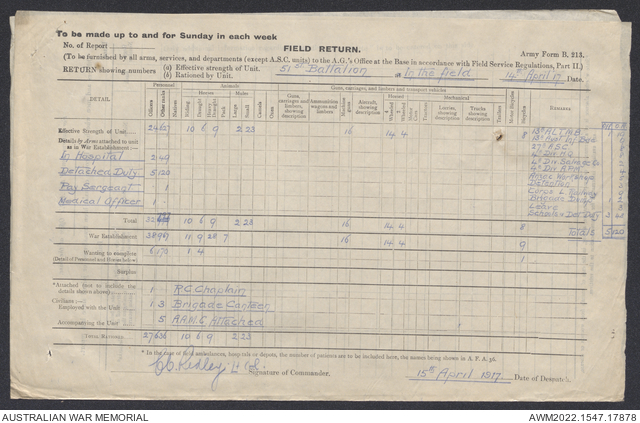 To be made up to and for Sunday in each week
No. of Report
FIELD RETURN.
Army Form B. 213.
(To be furnished by all arms, services, and departments (except A.S.C. units) to the A.G.'s Office at the Base in accordance with Field Service Regulations, Part II.)
RETURN showing numbers
(a) Effective strength of Unit.
(b) Rationed by Unit.
51st Battalion at In the field 14th April 17 Date.
DETAIL
Personnel
Animals
Guns, carriages, and limbers and transport vehicles
Officers
Other ranks
Natives
Horses
Mules
Riding
Draught
Heavy Draught
Pack
Large
Small
Camels
Oxen
Guns, carriages and limbers, showing description
Ammunition wagons and limbers
Machine
Aircraft, showing description
Horsed
4 Wheeled
2 Wheeled
Mechanical
Motor Cars
Tractors
Lorries, showing description
Trucks, showing description
Trailers
Motor Bicycles
Bicycles
REMARKS
Effective Strength of Unit
24 627 10 6 9 2 23 16 14 4 8
Details by Arms attached to unit as in War Establishment:—
In Hospital 2 49
Detached Duty 5 120
Pay Sergeant 1
Medical Officer 1
27th A.S.C.
4th Div H.Q.
4th Div Salvage Co
4th Div A.P.M.
Brigade Duty
Leave
Total 32 10 6 9 2 23 16 14 4 8
Totals 5 120
War Establishment 38 967 11 9 28 7 16 14 4 9
Wanting to complete 6 173 1 4 1
(Detail of Personnel and Horses below)
Surplus
*Attached (not to include the details shown above)
1 R.C. Chaplain
Civilians:—
Employed with the Unit
1 3 Brigade Canteen
Accompanying the Unit
5 A.A.M.C. Attached
TOTAL RATIONED 27 636 10 6 9 2 23
* In the case of field ambulances, hospitals or depots, the number of patients are to be included here, the names being shown in A.F.A. 36.
Signature of Commander.
15th April 1917.
Date of Despatch.
AUSTRALIAN WAR MEMORIAL
AWM2022.1547.17878